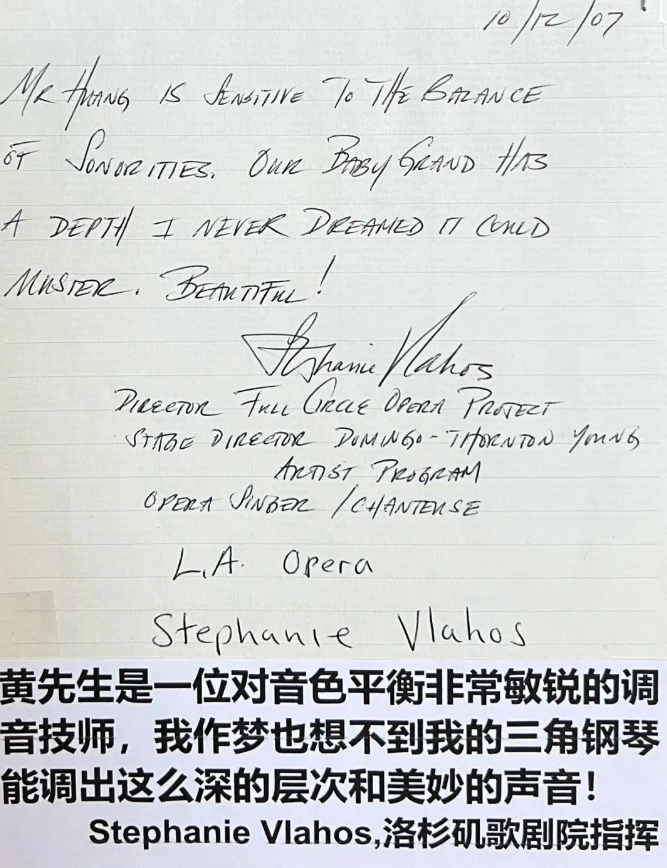 10/12/07
MR HUANG IS SENSITIVE TO THE BALANCE
OF SONORITIES. OUR BABY GRAND HAS
A DEPTH I NEVER DREAMED IT COULD
MUSTER. BEAUTIFUL!
Stephanie Vlahos
DIRECTOR FULL CIRCLE OPERA PROJECT
STAGE DIRECTOR DOMINGO-THORNTON YOUNG
ARTIST PROGRAM
OPERA SINGER / CHANTEUSE
L.A. Opera
Stephanie Vlahos
黄先生是一位对音色平衡非常敏锐的调
音技师，我作梦也想不到我的三角钢琴
能调出这么深的层次和美妙的声音！
Stephanie Vlahos,洛杉矶歌剧院指挥